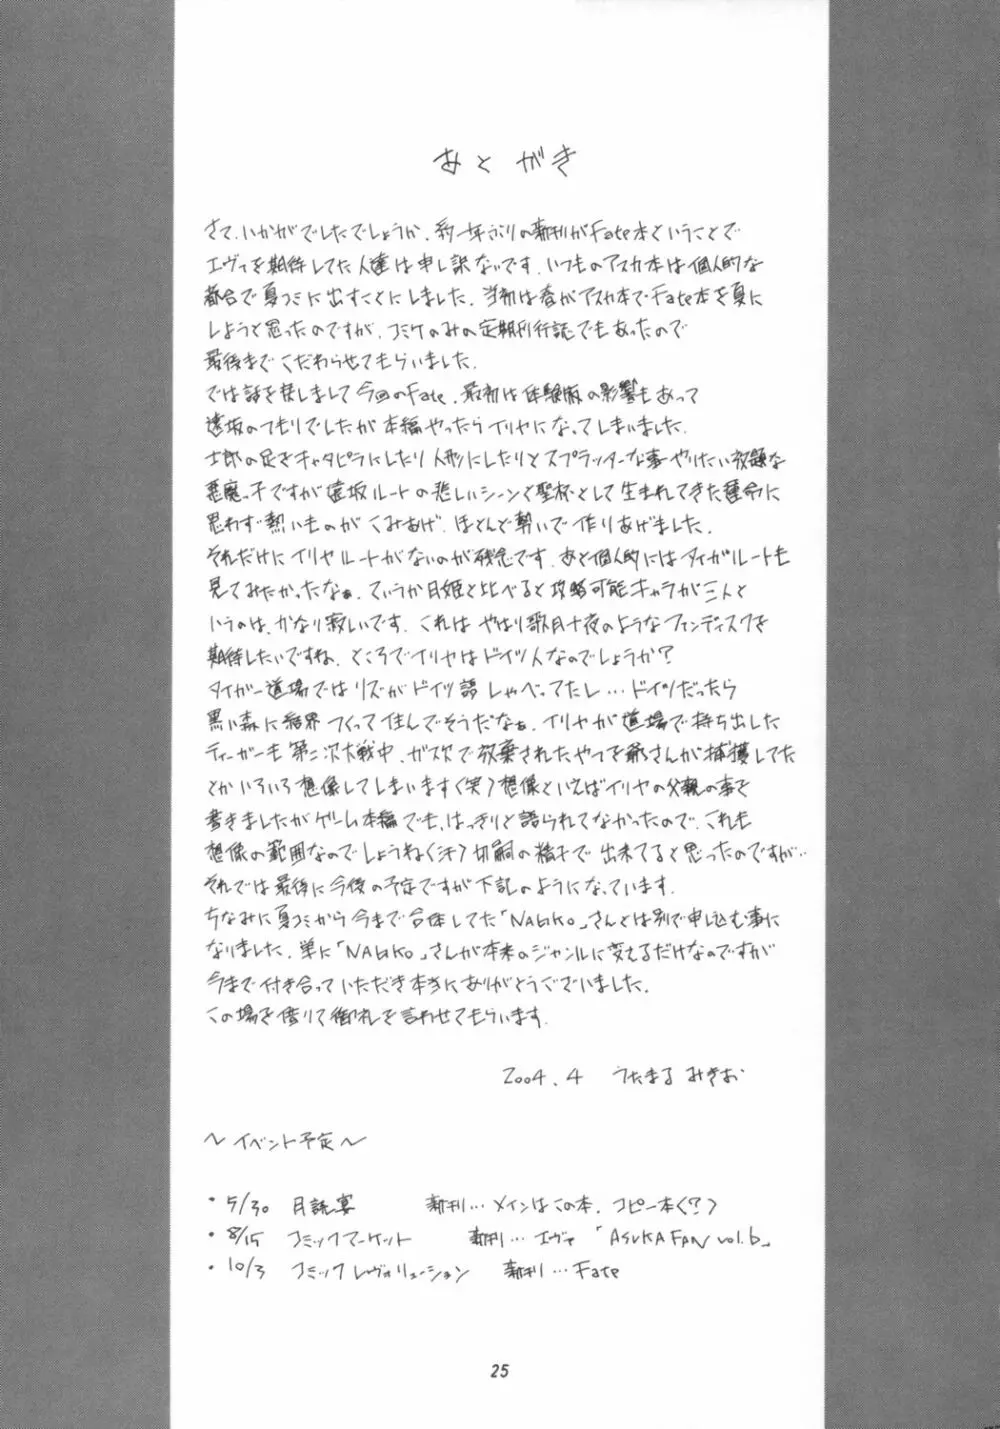 あとがき
さて、いかがでしたでしょうか、約一年ぶりの新刊がFate本ということで
エヴァを期待してた人達は申し訳ないです。いつものアスカ本は個人的な
都合で夏コミに出すことにしました。当初は春がアスカ本でFate本を夏に
しようと思ったのですが、コミケのみの定期刊行誌でもあったので
最後までこだわらせてもらいました。
では話を戻しまして今回のFate、最初は体験版の影響もあって
遠坂のつもりでしたが本編やったらイリヤになってしまいました。
士郎の足をキャタピラにしたり人形にしたりとスプラッターな事やりたい放題な
悪魔っ子ですが遠坂ルートの悲しいシーンで聖杯として生まれてきた運命に
思わず熱いものがこみあげ、ほとんど勢いで作りあげました。
それだけにイリヤルートがないのが残念です。あと個人的にはタイガルートも
見てみたかったなぁ。ていうか月姫と比べると攻略可能キャラが三人と
いうのは、かなり寂しいです。これはやはり歌月十夜のようなファンディスクを
期待したいですね。ところでイリヤはドイツ人なのでしょうか?
タイガー道場ではリズがドイツ語しゃべってたし…ドイツだったら
黒い森に結界つくって住んでそうだなぁ。イリヤが道場で持ち出した
ティーガーも第二次大戦中、ガス欠で放棄されたやつを爺さんが捕獲してた
とかいろいろ想像してしまいます(笑)想像といえばイリヤの父親の事を
書きましたがゲーム本編でも、はっきりと語られてなかったので、これも
想像の範囲なのでしょうね(汗)切嗣の精子で出来てると思ったのですが…
それでは最後に今後の予定ですが下記のようになっています。
ちなみに夏コミから今まで合体してた「NAGIKO」さんとは別で申し込む事に
なりました。単に「NAGIKO」さんが本来のジャンルに変えるだけなのですが
今まで付き合っていただき本当にありがとうございました。
この場を借りて御礼を言わせてもらいます。
2004.4 うたまる みきお
～イベント予定～
・5/30 月読宴 新刊…メインはこの本、コピー本(?)
・8/15 コミックマーケット 新刊…エヴァ「ASUKA FAN vol.6」
・10/3 コミックレヴォリューション 新刊…Fate
25